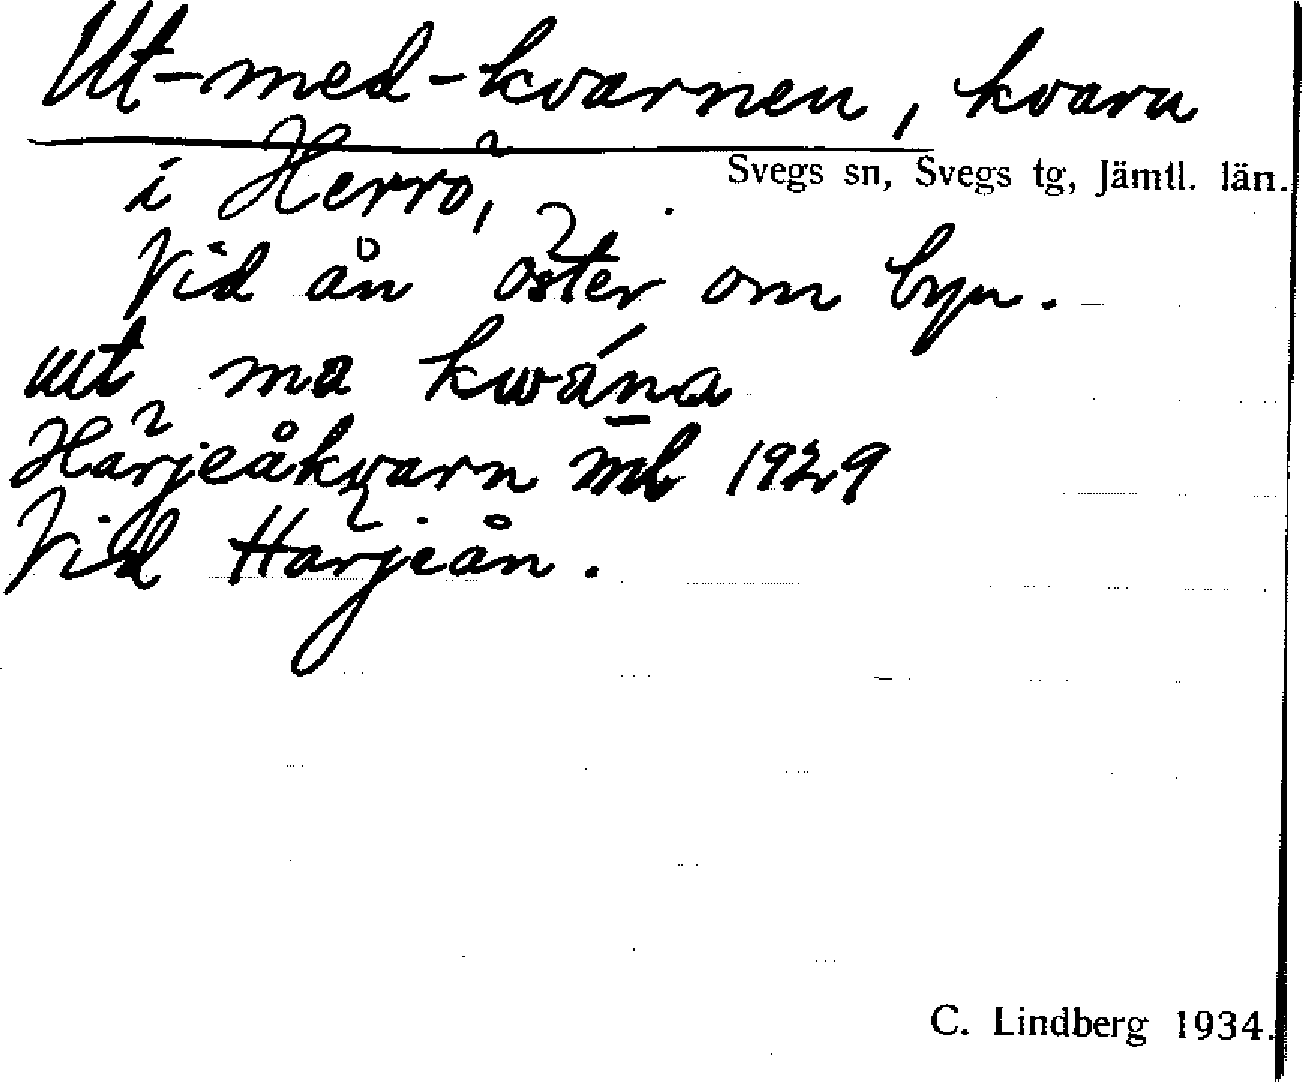 Ut-med-kvarnen, kvarn
i Herrö,
Svegs sn, Svegs tg, Jämtl. län.
Vid ån öster om byn.
ut ma kwána
Härjeåkvarn mb 1929
Vid Härjeån.
C. Lindberg 1934.